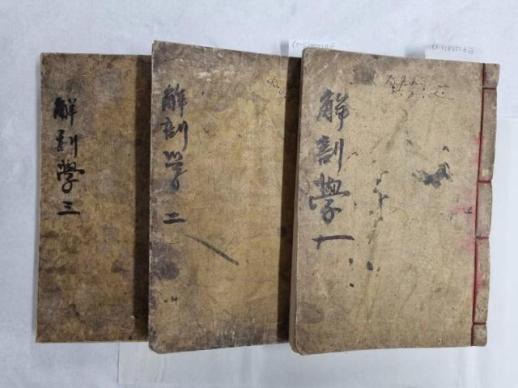 解剖學一
解剖學二
解剖學三